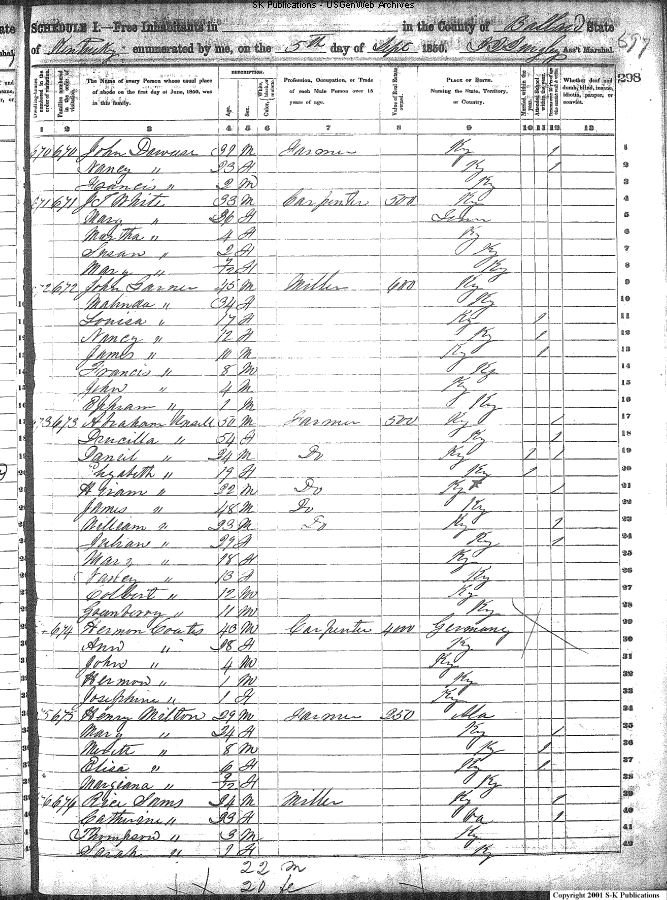 SK Publications - USGenWeb Archives
SCHEDULE I.—Free Inhabitants in in the County of Ballard State
of Kentucky enumerated by me, on the 5th day of Sept 1850. Ass't Marshal. 597
298
Dwelling-houses numbered in the order of visitation. Families numbered in the order of visitation. The Name of every Person whose usual place of abode on the first day of June, 1850, was in this family. DESCRIPTION. Age. Sex. Color, Profession, Occupation, or Trade of each Male Person over 15 years of age. Value of Real Estate owned. PLACE OF BIRTH. Naming the State, Territory, or Country. Married within the year. Attended School within the year. Whether deaf and dumb, blind, insane, idiotic, pauper, or convict.
1 2 3 4 5 6 7 8 9 10 11 12 13
670 670 John 29 M Farmer Ky 1 1
Nancy " 23 F Ky 1 2
Francis " 2 M Ky 3
671 671 J T White 33 M Carpenter 500 Ky 4
Mary " 26 F Tenn 5
Martha " 4 F Ky 6
Susan " 2 F Ky 7
Mary " F Ky 8
672 672 John Garner 45 M Miller 400 Ky 9
Malinda " 34 F Ky 10
Louisa " 17 F Ky 1 11
Nancy " 12 F Ky 1 12
James " 10 M Ky 1 13
Francis " 8 M Ky 14
John " 4 M Ky 15
Ephram " 1 M Ky 16
673 673 Abraham 50 M Farmer 500 Ky 1 17
Drucilla " 54 F Ky 1 18
Daniel " 24 M Do Ky 1 1 19
Elizabeth " 19 F Ky 1 20
Hiram " 22 M Do Ky 1 21
James " 48 M Do Ky 22
William " 23 M Do Ky 1 23
Julian " 29 F Ky 1 24
Mary " 18 F Ky 25
" 13 F Ky 26
Colbert " 12 M Ky 27
Granberry " 11 M Ky 28
674 Hermon Coates 43 M Carpenter 4000 Germany 29
Ann " 28 F Ky 30
John " 4 M Ky 31
Hermon " 1 M Ky 32
Josephine " 1 F Ky 33
675 675 Henry Milton 29 M Farmer 250 Ala 34
Mary " 24 F Ky 1 35
" 8 M Ky 1 36
Elisa " 6 F Ky 1 37
Margiana " F Ky 38
676 676 Rice Sams 24 M Miller Ky 1 39
Catherine " 23 F Va 1 40
Thompson " 3 M Ky 41
Sarah " 1 F Ky 42
22 m
20 fe
Copyright 2001 S-K Publications